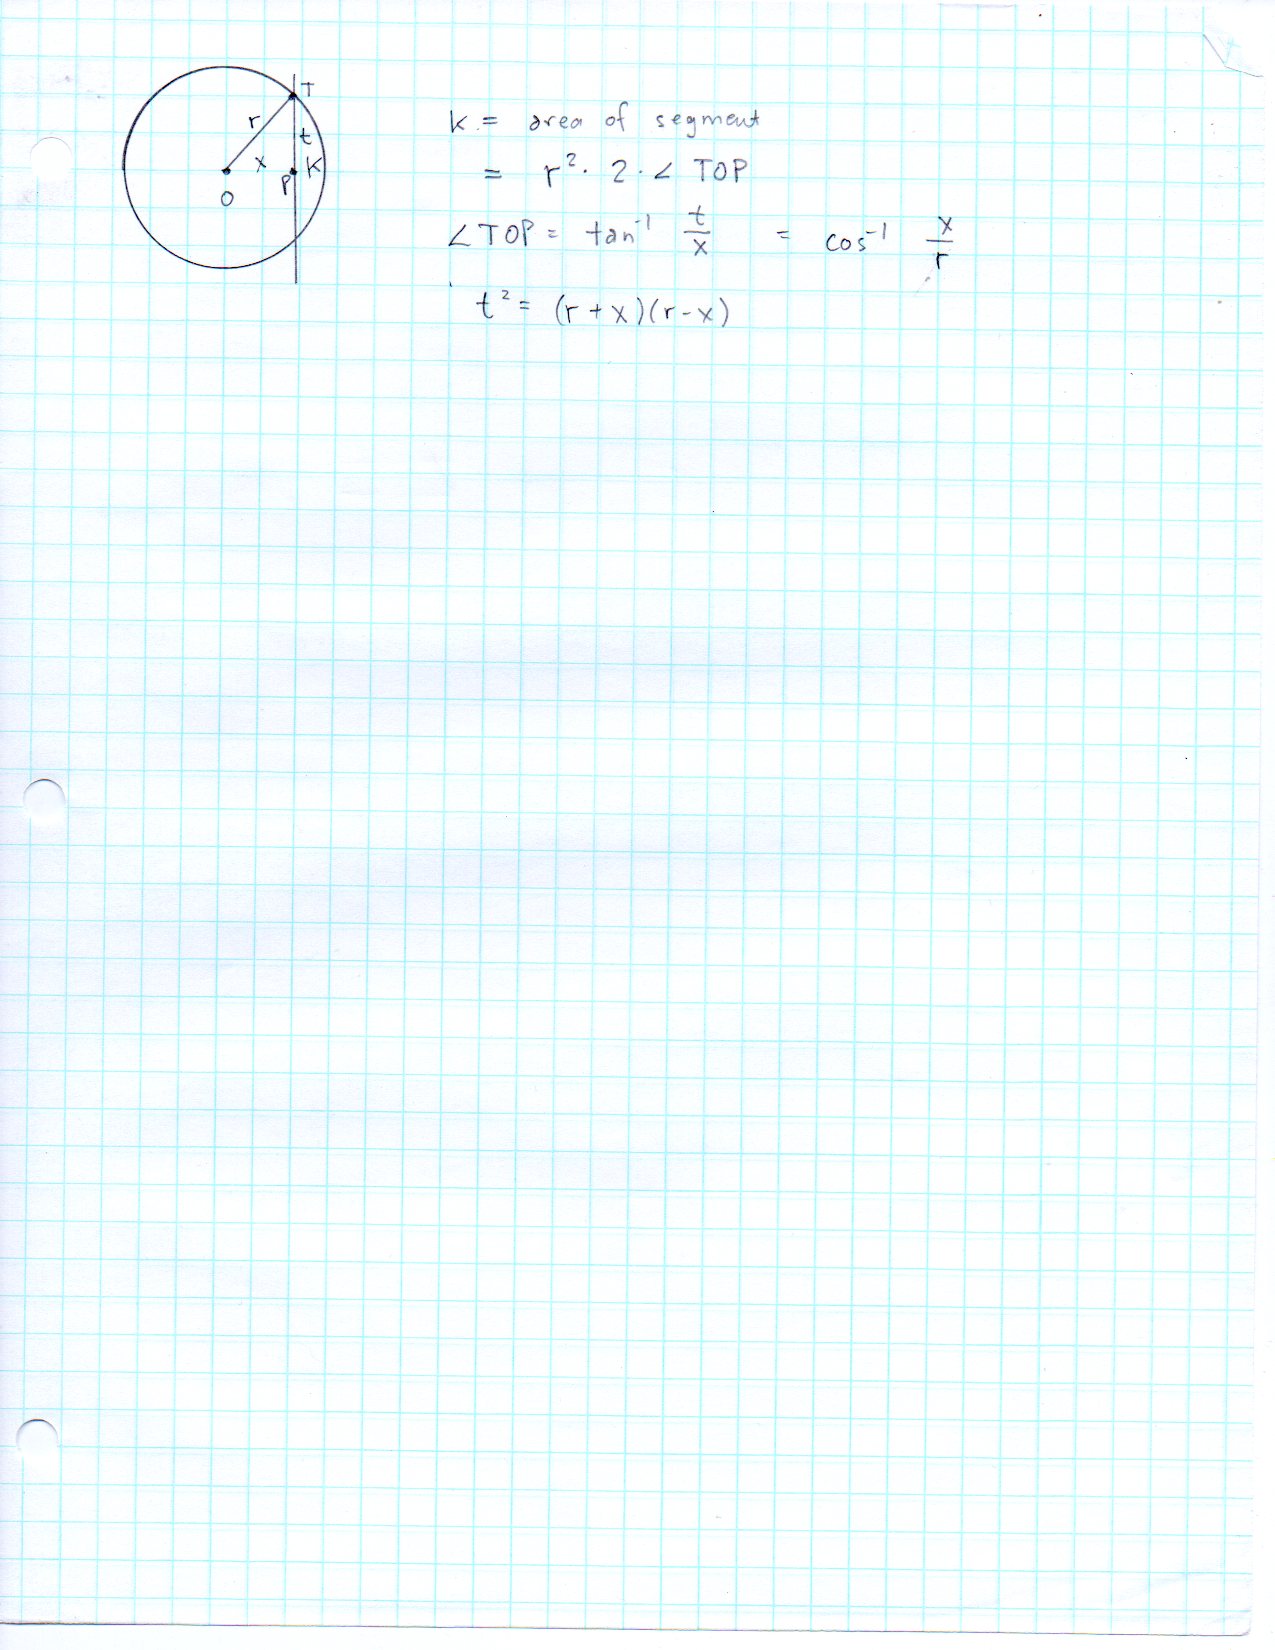 T
r
t
x
P
K
O
K = area of segment
= r². 2 . ∠ TOP
∠TOP = tan⁻¹ t/x = cos⁻¹ x/r
t² = (r + x)(r - x)